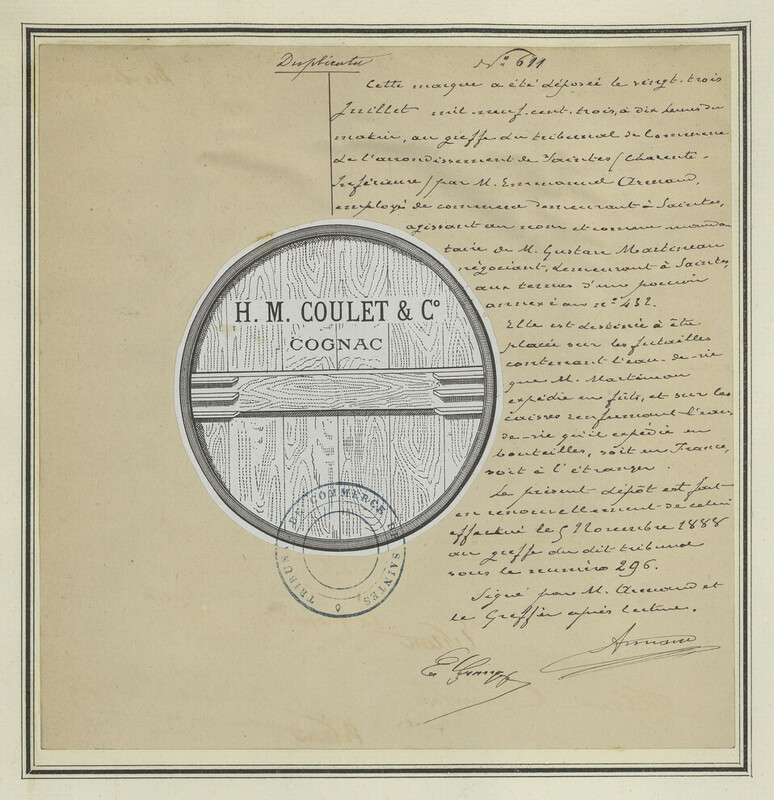 Duplicata
N° 611
Cette marque a été déposée le vingt-trois
Juillet mil-neuf-cent-trois, à dix heures du
matin, au greffe du tribunal de Commerce
de l'arrondissement de Saintes (Charente-
Inférieure) par M. Emmanuel Armand,
employé de commerce demeurant à Saintes,
agissant au nom et comme manda-
taire de M. Gustave Martineau
négociant, demeurant à Saintes,
aux termes d'un pouvoir
annexé au n° 432.
Elle est destinée à être
placée sur les futailles
contenant l'eau-de-vie
que M. Martineau
expédie en fûts, et sur les
caisses renfermant l'eau-
de-vie qu'il expédie en
bouteilles, soit en France,
soit à l'étranger.
Le présent dépôt est fait
en renouvellement de celui
effectué le 5 Novembre 1888
au greffe du dit tribunal
sous le numéro 296.
Signé par M. Armand et
le Greffier après lecture.
Armand
H. M. COULET & Co
COGNAC
TRIBUNAL DE COMMERCE DE SAINTES